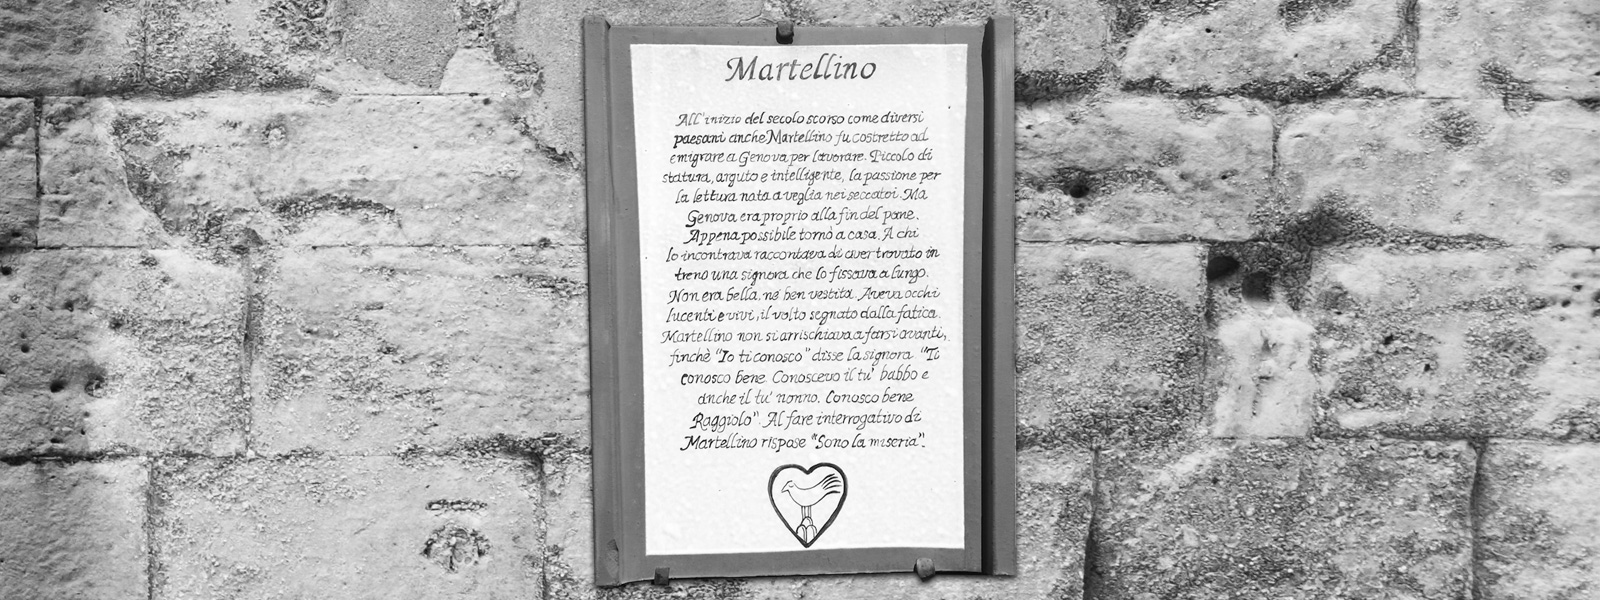 Martellino
All'inizio del secolo scorso come diversi
paesani anche Martellino fu costretto ad
emigrare a Genova per lavorare. Piccolo di
statura, arguto e intelligente, la passione per
la lettura nata a veglia nei seccatoi. Ma
Genova era proprio alla fin del pane.
Appena possibile tornò a casa. A chi
lo incontrava raccontava di aver trovato in
treno una signora che lo fissava a lungo.
Non era bella, né ben vestita. Aveva occhi
lucenti e vivi, il volto segnato dalla fatica.
Martellino non si arrischiava a farsi avanti,
finchè "Io ti conosco" disse la signora "Ti
conosco bene. Conoscevo il tu' babbo e
anche il tu' nonno. Conosco bene
Raggiolo". Al fare interrogativo di
Martellino rispose "Sono la miseria".